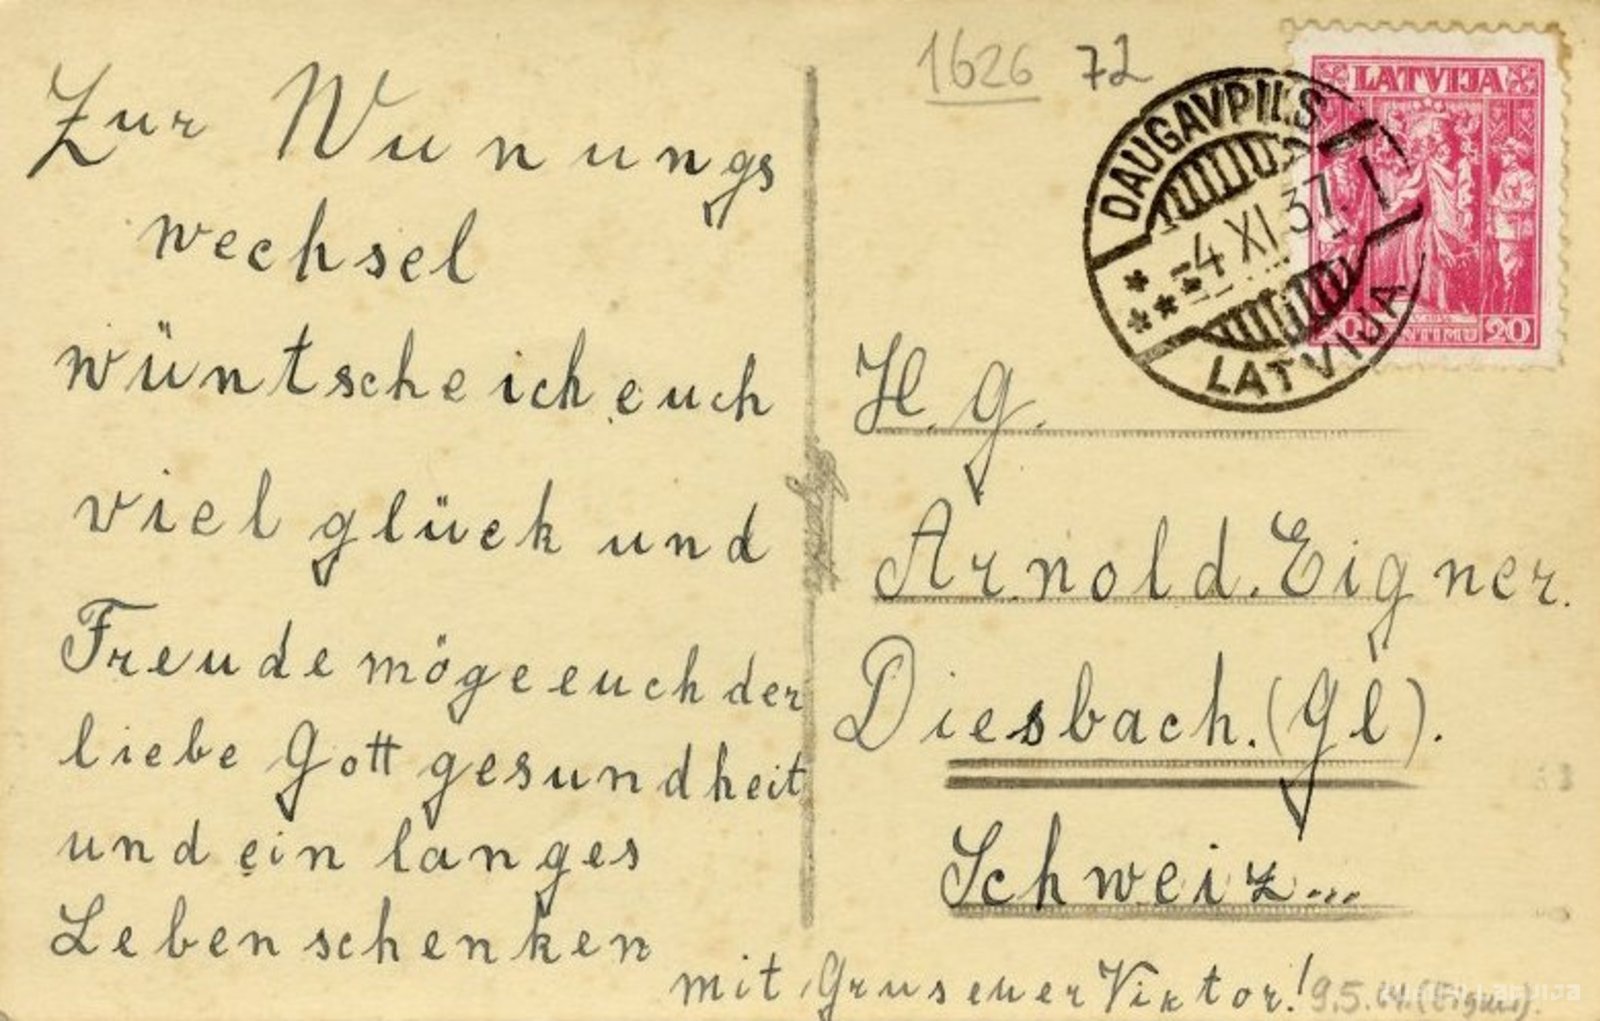 1626 72
LATVIJA
20 SANTIMU 20
DAUGAVPILS
-4 XI 37. I
LATVIJA
Zur Wunungs
wechsel
wüntsche ich euch
viel glück und
Freude möge euch der
liebe Gott gesundheit
und ein langes
Leben schenken
mit Grus euer Viktor!
H. G.
Arnold. Eigner.
Diesbach. (Gl).
Schweiz...
9.5.